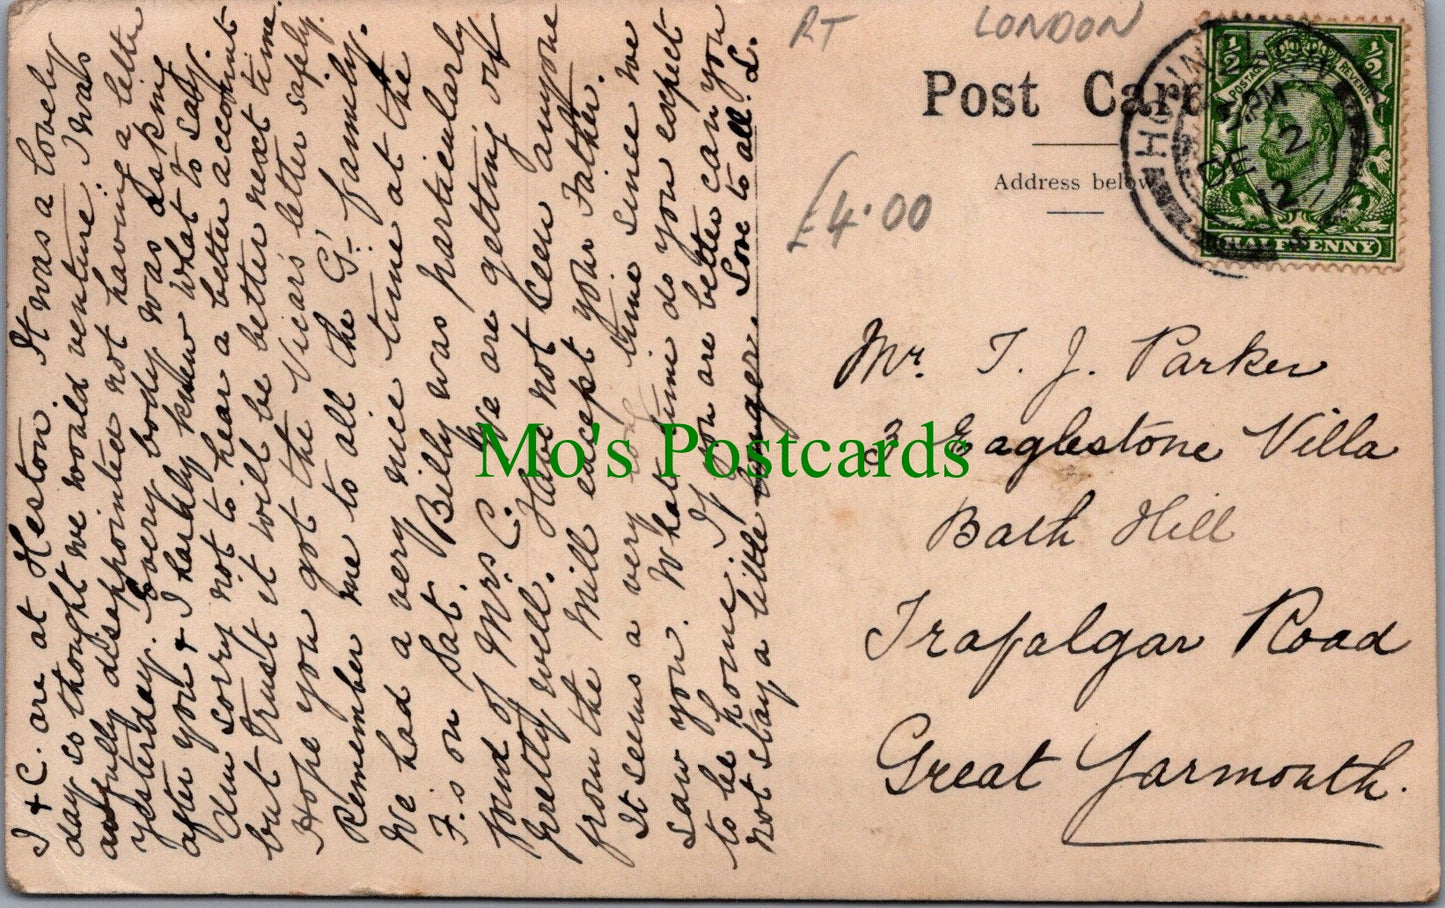 I & C. are at Heston. It was a lovely
day so thought we would venture. I was
awfully disappointed not having a letter
yesterday. Every body was asking
after you & I hardly knew what to say.
Am sorry not to hear a better account
but trust it will be better next time.
Hope you got the Vicar's letter safely.
Remember me to all the G. family.
We had a very nice time at the
F.s on Sat. Billy was particularly
fond of Mrs C. We are getting on
pretty well. Have not seen anyone
from the Mill except your Father.
It seems a very long time since we
saw you. What time do you expect
to be home. If you are better can you
not stay a little longer. Love to all. L.
RT LONDON
Post Card
Address below
£4.00
HOUNSLOW
PM
DE 2
12
POSTAGE REVENUE
1/2 1/2
HALFPENNY
Mr. T. J. Parker
3 Eaglestone Villa
Bath Hill
Trafalgar Road
Great Yarmouth.
Mo's Postcards